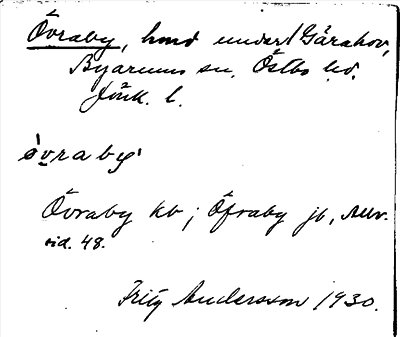 Övraby, hmd under Gärahov,
Byarums sn, Östbo hd,
Jönk. l.
övraby
Övraby kb; Öfraby jb,
sid. 48.
Fritz Andersson 1930.